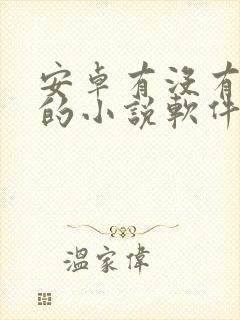 安卓有没有
的小說軟件
溫家偉